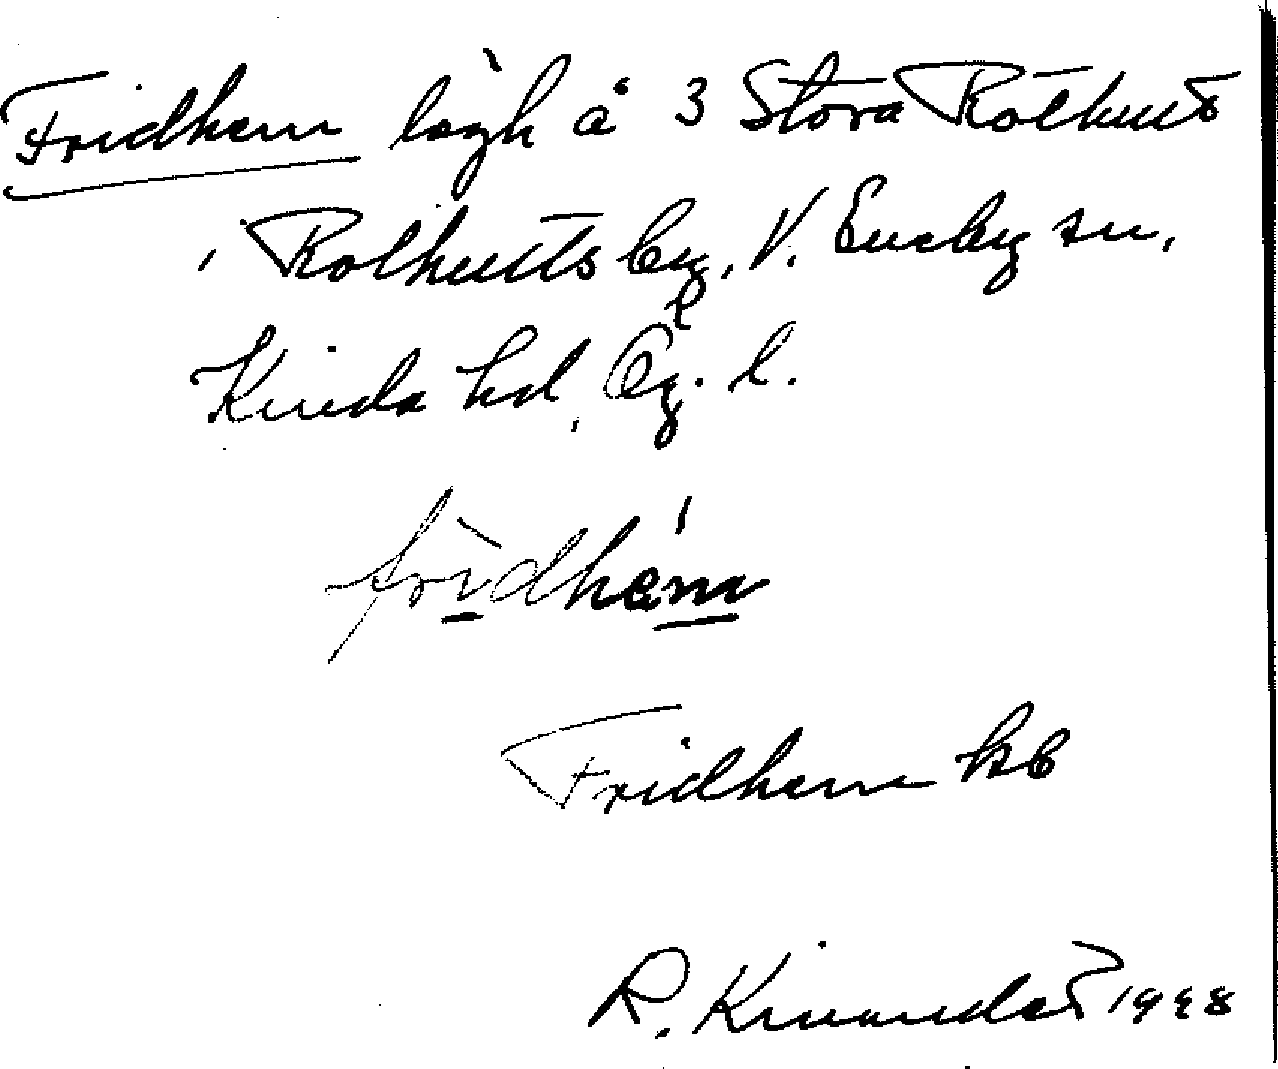 Fridhem lägh å 3 Stora Rothult
i Rothults by, V. Eneby sn,
Kinda hd, Ög. l.
frìdhém
Fridhem kb
R. Kinander 1928